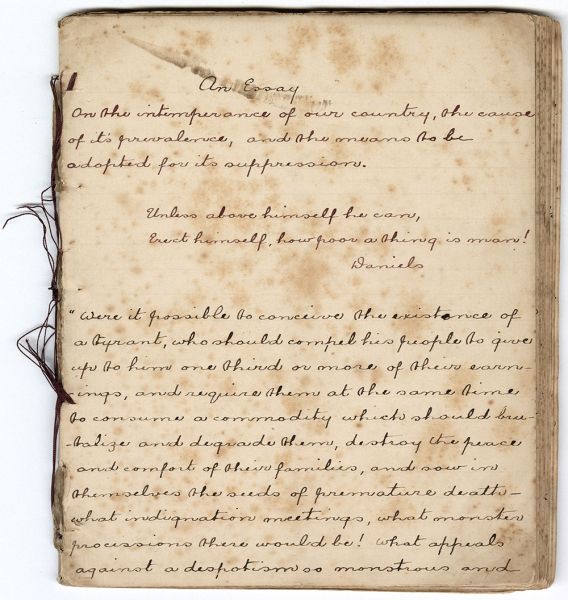 An Essay
On the intemperance of our country, the cause
of it's prevalence, and the means to be
adopted for its suppression.
Unless above himself he can,
Erect himself, how poor a thing is man!
Daniels
"Were it possible to conceive the existence of
a tyrant, who should compel his people to give
up to him one third or more of their earn-
-ings, and require them at the same time
to consume a commodity which should bru-
-talize and degrade them, destroy the peace
and comfort of their families, and sow in
themselves the seeds of premature death—
what indignation meetings, what monster
processions there would be! What appeals
against a despotism so monstrous and